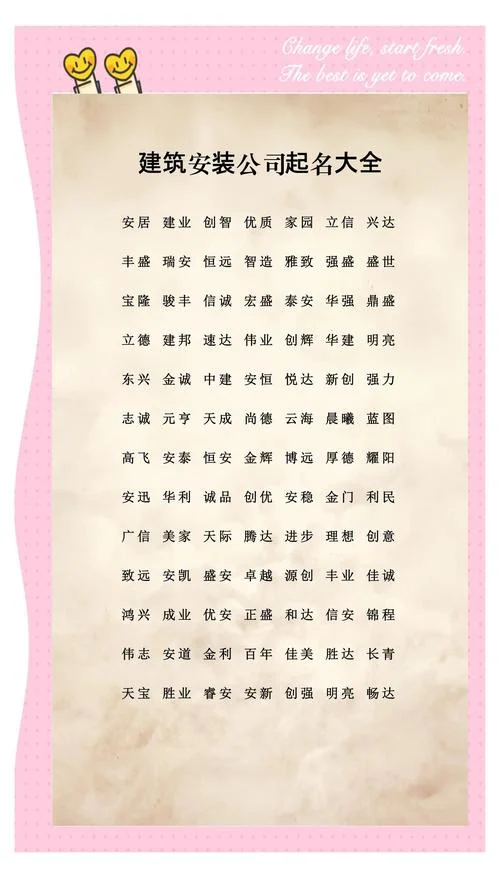 Change life, start fresh.
The best is yet to come.
建筑安装公司起名大全
安居 建业 创智 优质 家园 立信 兴达
丰盛 瑞安 恒远 智造 雅致 强盛 盛世
宝隆 骏丰 信诚 宏盛 泰安 华强 鼎盛
立德 建邦 速达 伟业 创辉 华建 明亮
东兴 金诚 中建 安恒 悦达 新创 强力
志诚 元亨 天成 尚德 云海 晨曦 蓝图
高飞 安泰 恒安 金辉 博远 厚德 耀阳
安迅 华利 诚品 创优 安稳 金门 利民
广信 美家 天际 腾达 进步 理想 创意
致远 安凯 盛安 卓越 源创 丰业 佳诚
鸿兴 成业 优安 正盛 和达 信安 锦程
伟志 安道 金利 百年 佳美 胜达 长青
天宝 胜业 睿安 安新 创强 明亮 畅达